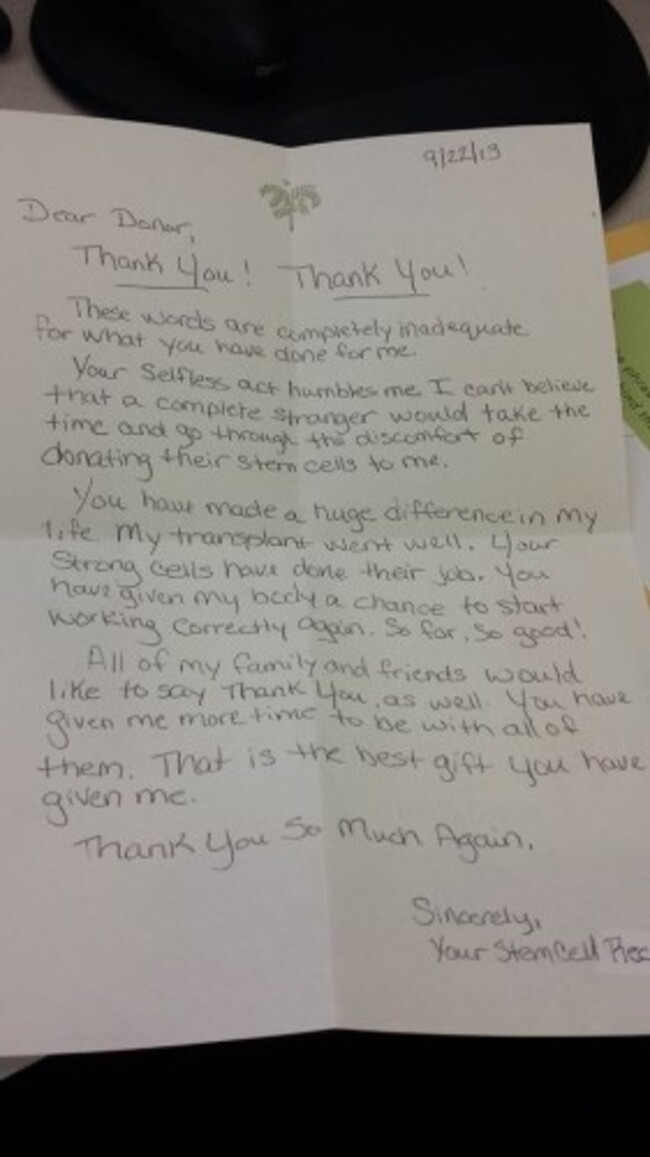 9/22/13
Dear Donor,
Thank You! Thank You!
These words are completely inadequate
for what you have done for me.
Your Selfless act humbles me. I can't believe
that a complete stranger would take the
time and go through the discomfort of
donating their stem cells to me.
You have made a huge difference in my
life. My transplant went well. Your
Strong cells have done their job. You
have given my body a chance to start
working correctly again. So far, So good!
All of my family and friends would
like to say Thank You, as well. You have
given me more time to be with all of
them. That is the best gift you have
given me.
Thank You So Much Again,
Sincerely,
Your Stem Cell